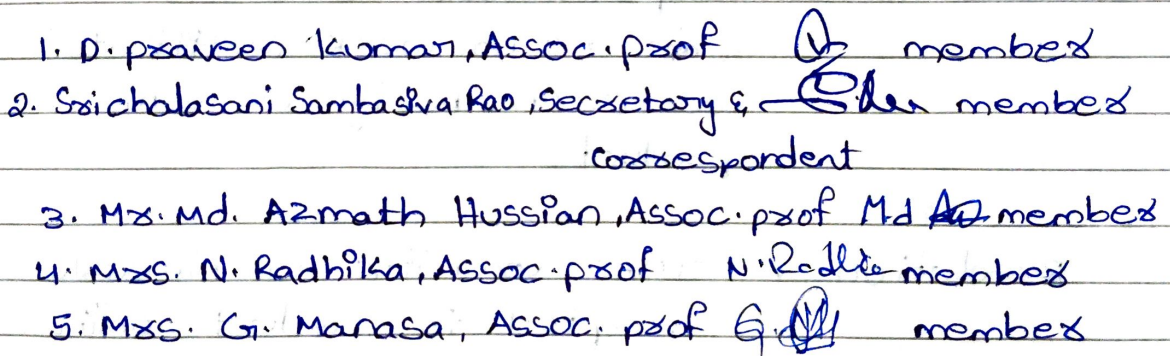 1. D. praveen kumar, Assoc. prof member
2. Srichalasani Sambasiva Rao, Secretary & member
correspondent
3. Mr. Md. Azmath Hussian, Assoc. prof Md member
4. Mrs. N. Radhika, Assoc. prof N. Radhika member
5. Mrs. G. Manasa, Assoc. prof G. member